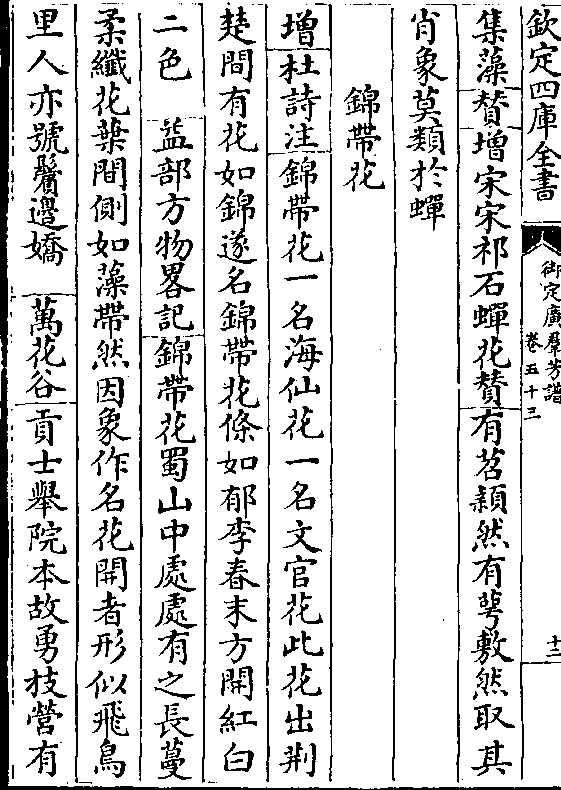 欽定四庫全書
御定廣羣芳譜
卷五十三
十二
集藻贊增宋宋祁石蟬花贊有苕穎然有萼敷然取其
肖象莫類於蟬
錦帶花
增杜詩注錦帶花一名海仙花一名文官花此花出荆
楚間有花如錦遂名錦帶花條如郁李春末方開紅白
二色 益部方物畧記錦帶花蜀山中處處有之長蔓
柔纖花葉間側如藻帶然因象作名花開者形似飛鳥
里人亦號鬢邊嬌 萬花谷貢士舉院本故勇技營有